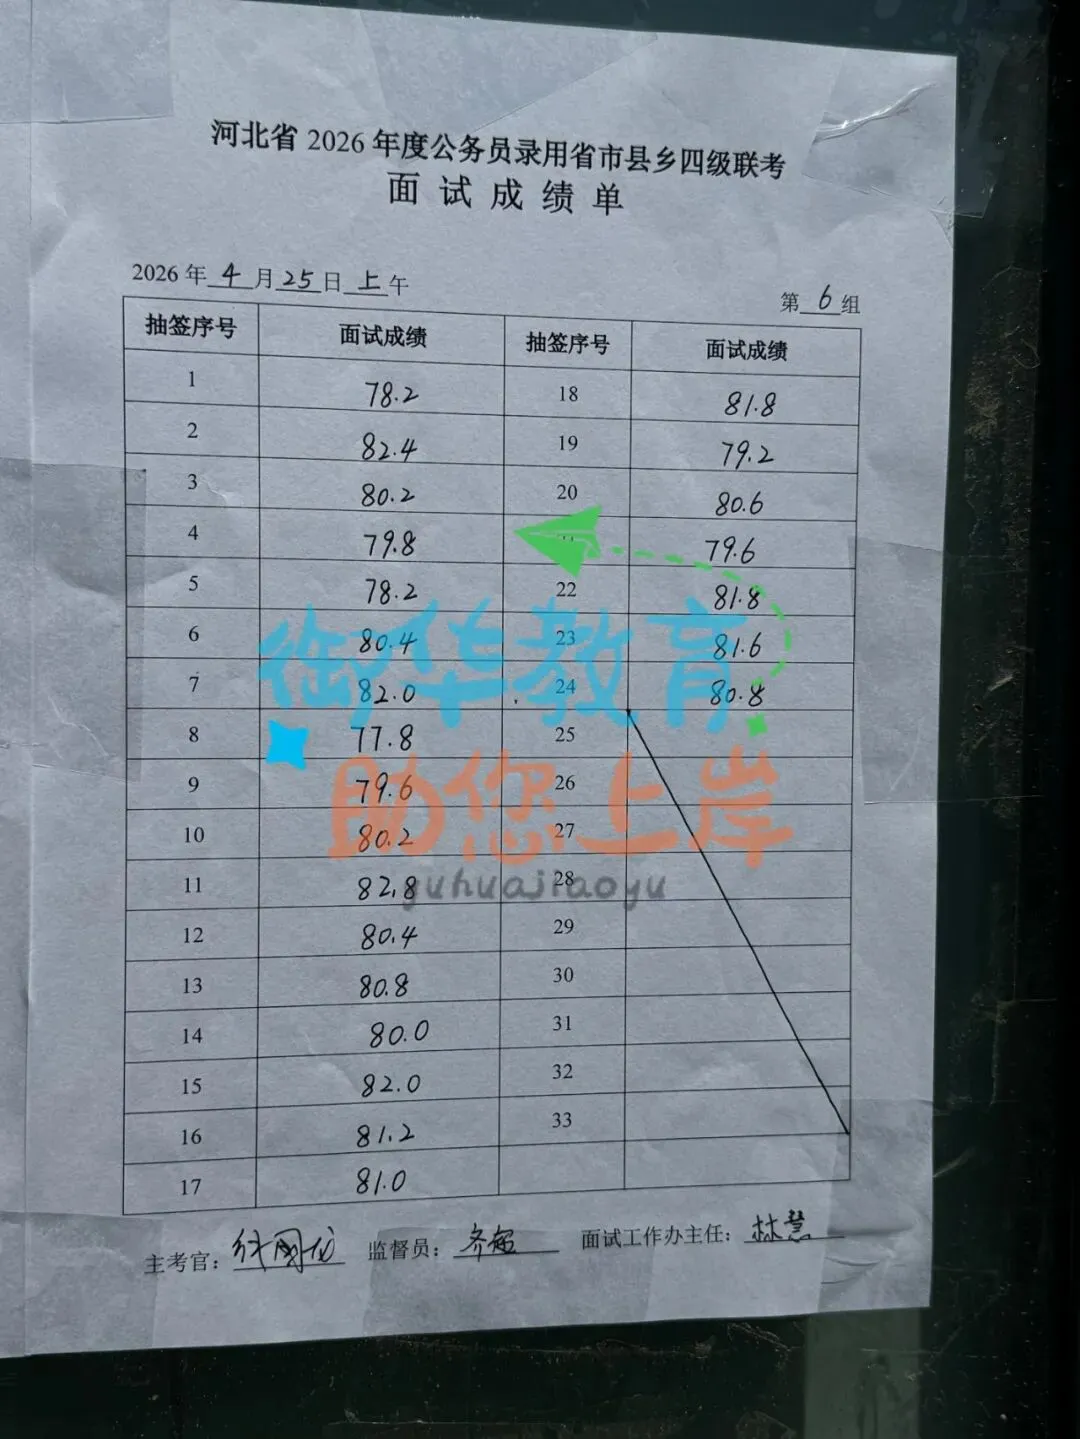 河北省 2026 年度公务员录用省市县乡四级联考
面 试 成 绩 单
2026 年 4 月 25 日 上 午
第 6 组
抽签序号 面试成绩 抽签序号 面试成绩
1 78.2 18 81.8
2 82.4 19 79.2
3 80.2 20 80.6
4 79.8 79.6
5 78.2 22 81.8
6 80.4 23 81.6
7 82.0 24 80.8
8 77.8 25
9 79.6 26
10 80.2 27
11 82.8 28
12 80.4 29
13 80.8 30
14 80.0 31
15 82.0 32
16 81.2 33
17 81.0
主考官： 监督员： 面试工作办主任：林慧
御华教育
助您上岸
yuhuajiaoyu